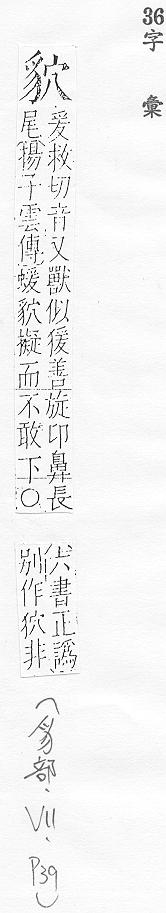 36字彙
貁
爰救切音又獸似猨善旋卬鼻長
尾揚子雲傳蝯貁擬而不敢下○
六書正譌
別作狖非
(豸部·VII·P39)